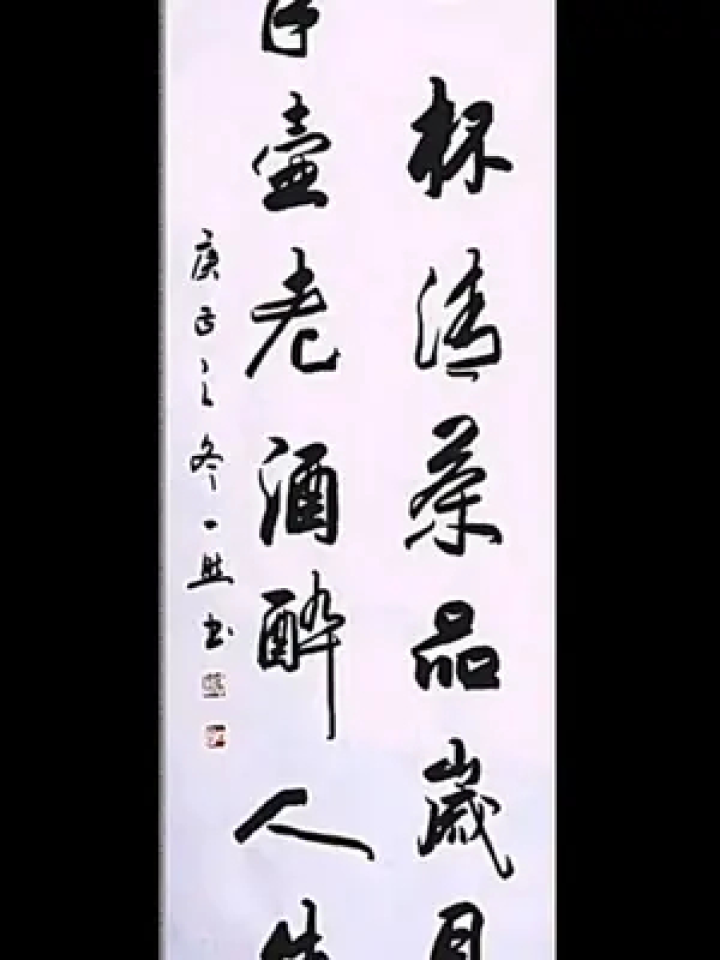 杯清茶品歲月
壺老酒醉人生
庚子之冬一熙书